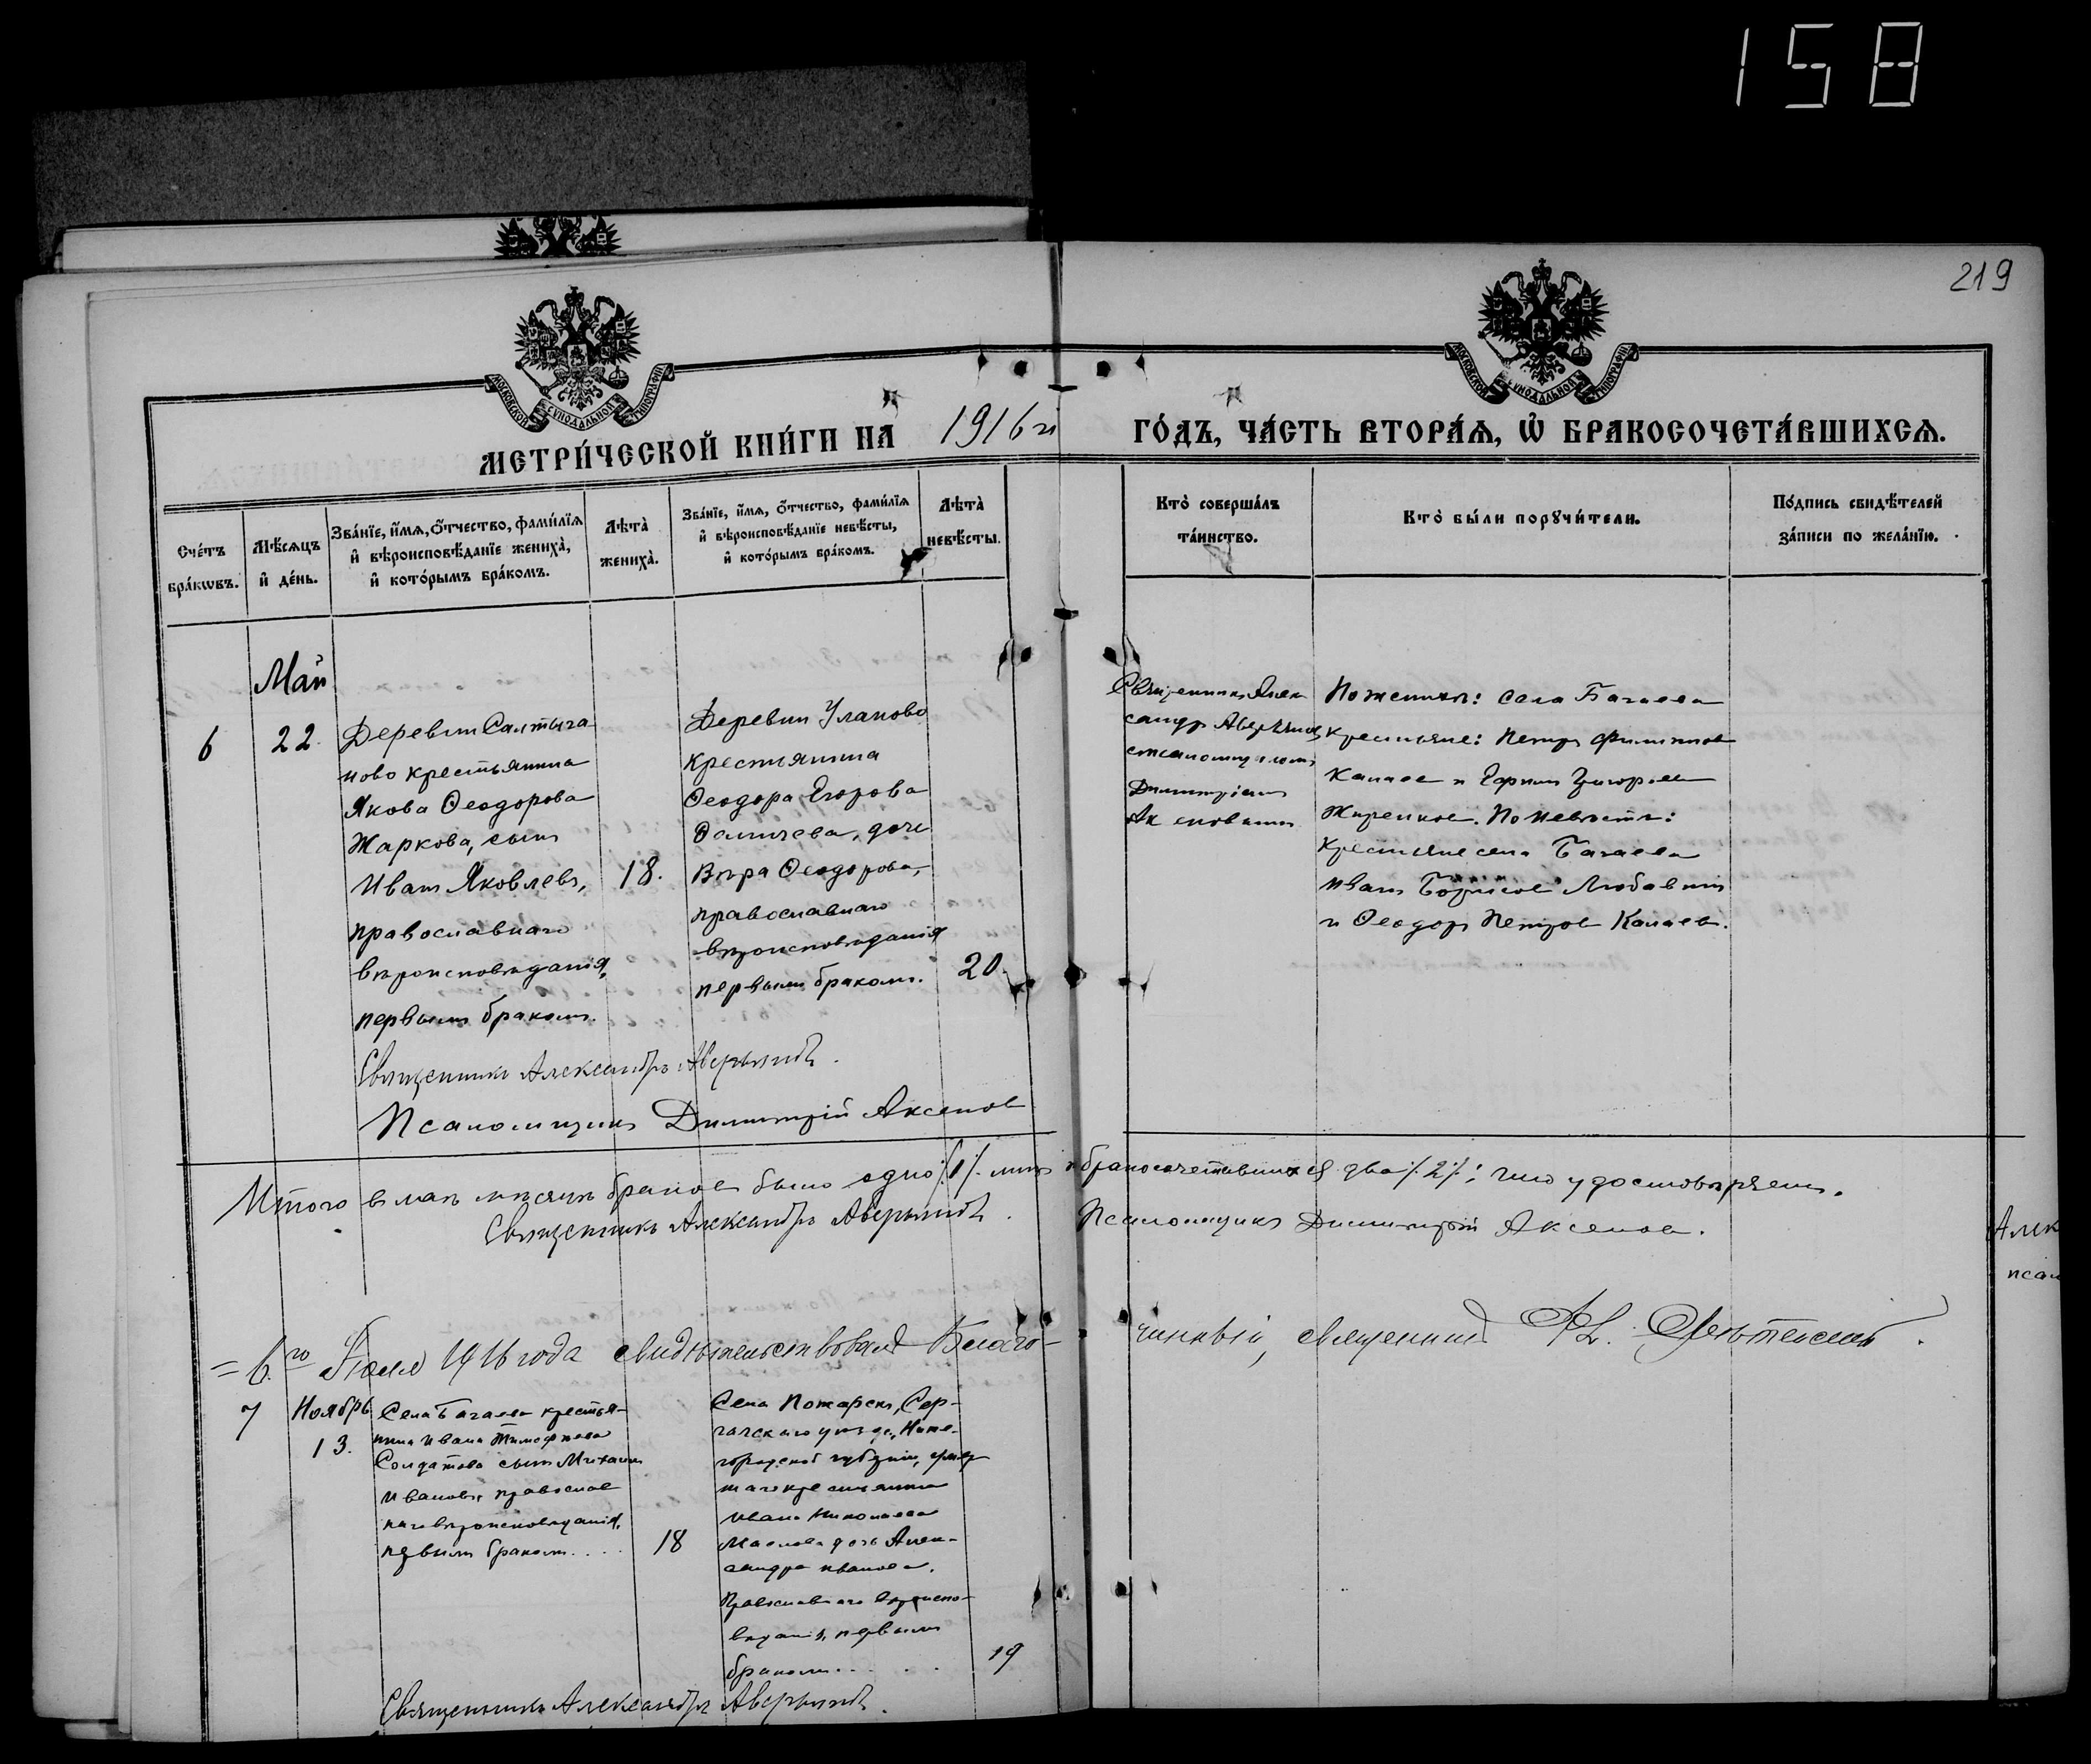 158
219
МОСКОВСКОЙ СѴНОДАЛЬНОЙ ТИПОГРАФІИ
МОСКОВСКОЙ СѴНОДАЛЬНОЙ ТИПОГРАФІИ
МЕТРИ́ЧЕСКОЙ КНИ́ГИ НА 1916й ГО́ДЪ, ЧА́СТЬ ВТОРА́Ѧ, Ѡ҆ БРАКОСОЧЕТА́ВШИХСѦ.
Сче́тъ бра́кѡвъ.
Мѣ́сѧцъ и҆ де́нь.
Зва́нїе, и҆́мѧ, ѻ҆́тчество, фами́лїѧ
и҆ вѣроисповѣ́данїе женихà,
и҆ кото́рымъ бра́комъ.
Лѣ̑та̀ женихà.
Зва́нїе, и҆́мѧ, ѻ҆́тчество, фами́лїѧ
и҆ вѣроисповѣ́данїе невѣ́сты,
и҆ кото́рымъ бра́комъ.
Лѣ̑та̀ невѣ́сты.
Кто̀ соверша́лъ
та́инство.
Кто̀ бы́ли порꙋчи́тели.
По́дпись свидѣ́телей
за́писи по жела́нїю.
Май
6
22.
Деревни Салтыга
ново крестьянина
Якова Ѳеодорова
Жаркова, сынъ
Иванъ Яковлевъ,
православнаго
вѣроисповѣданія,
первымъ бракомъ.
18.
Деревни Уланово
крестьянина
Ѳеодора Егорова
дочь
Вѣра Ѳеодорова,
православнаго
вѣроисповѣданія
первымъ бракомъ.
20
Священникъ Алек
сандръ Аверьяновъ
съ псаломщикомъ
Димитріемъ
Аксеновымъ
По женихѣ: села Багаева
крестьяне: Петръ Филиппов
Калаев и
По невѣстѣ:
крестьяне села Багаева
Иванъ Борисов
и Ѳеодоръ Петров Калаев.
Священникъ Александръ Аверьяновъ.
Псаломщикъ Димитрій Аксенов
Итого в маѣ мѣсяцѣ браков было одно /1/. лицъ бракосочетавшихся два /2/; что удостовѣряемъ.
Священникъ Александръ Аверьяновъ. Псаломщикъ Димитрій Аксенов.
Алек
псал
= 6.го 1916 года свидѣтельствовалъ Благо-
чинный, священникъ
7
Ноябрь
13.
Села Багаева крестья-
нина Ивана Тимофеева
Солдатова сынъ Михаилъ
Ивановъ, православ
наго вѣроисповѣданія,
первымъ бракомъ....
18
Села Пожарокъ, Сер-
гачскаго уѣзда, Ниже-
городской губерніи,
крестьянина
Ивана Николаева
Маслова дочь Алек-
сандра Иванова.
Православнаго вѣроиспо-
вѣданія, первымъ
бракомъ....
19
Священникъ Александръ Аверьяновъ.